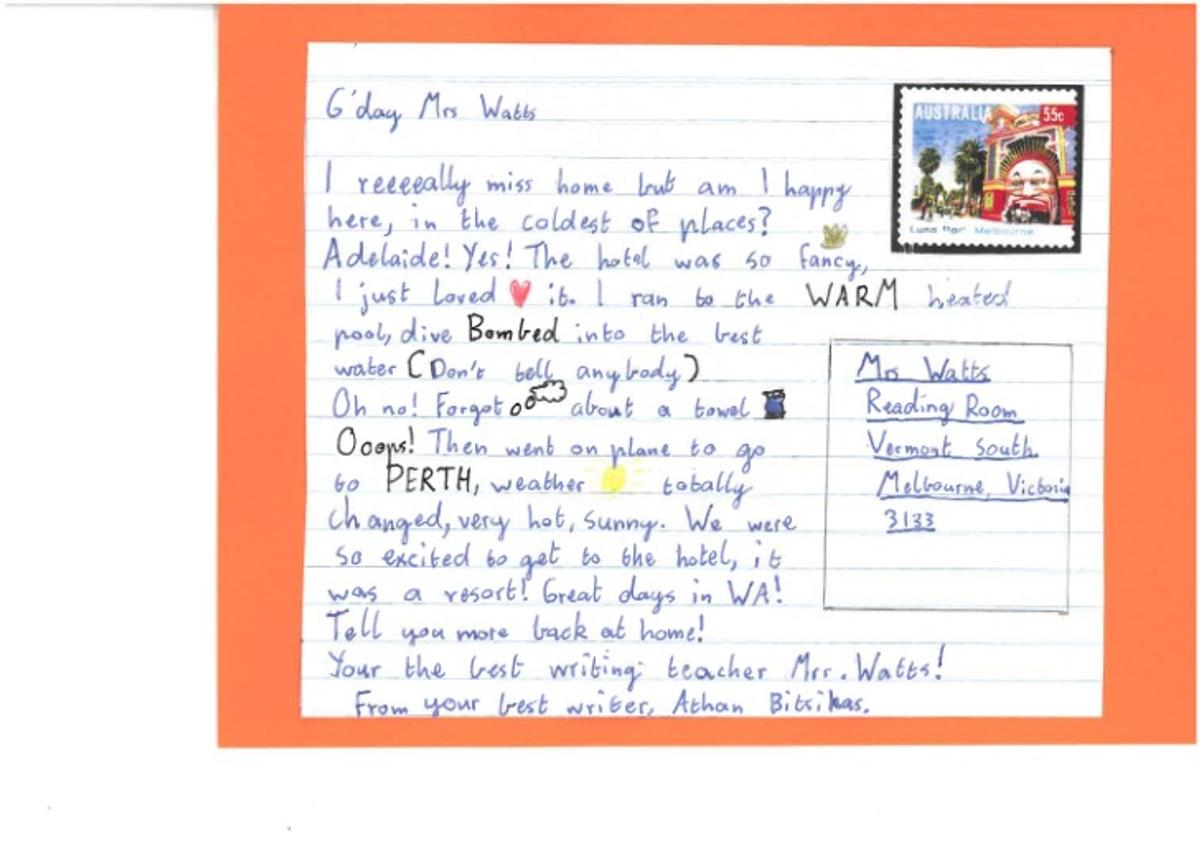 G'day Mrs Watts
AUSTRALIA 55c
Luna Par' Melbourne
I reeeeally miss home but am I happy
here, in the coldest of places?
Adelaide! Yes! The hotel was so fancy,
I just loved it. I ran to the WARM heated
pool, dive Bombed into the best
water (Don't tell anybody)
Oh no! Forgot about a towel
Ooops! Then went on plane to go
to PERTH, weather totally
changed, very hot, sunny. We were
so excited to get to the hotel, it
was a resort! Great days in WA!
Tell you more back at home!
Your the best writing teacher Mrr. Watts!
From your best writer, Athan Bitsikas.
Mrs Watts
Reading Room
Vermont South
Melbourne, Victoria
3133